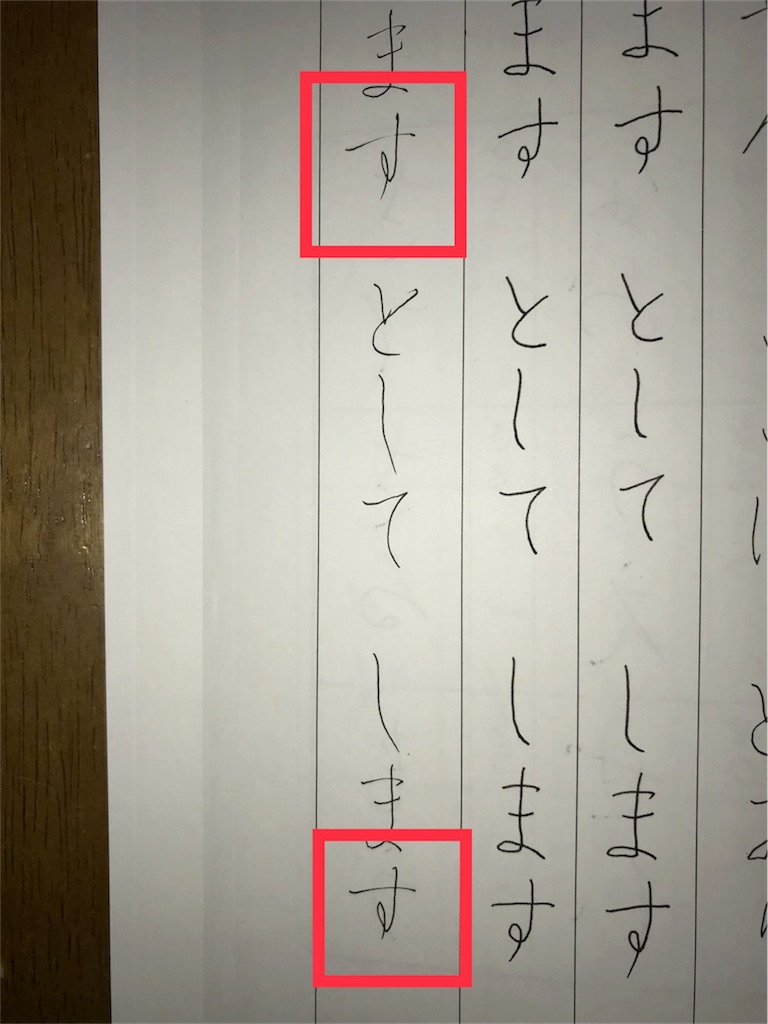 ます として します
ます として します
ます として します